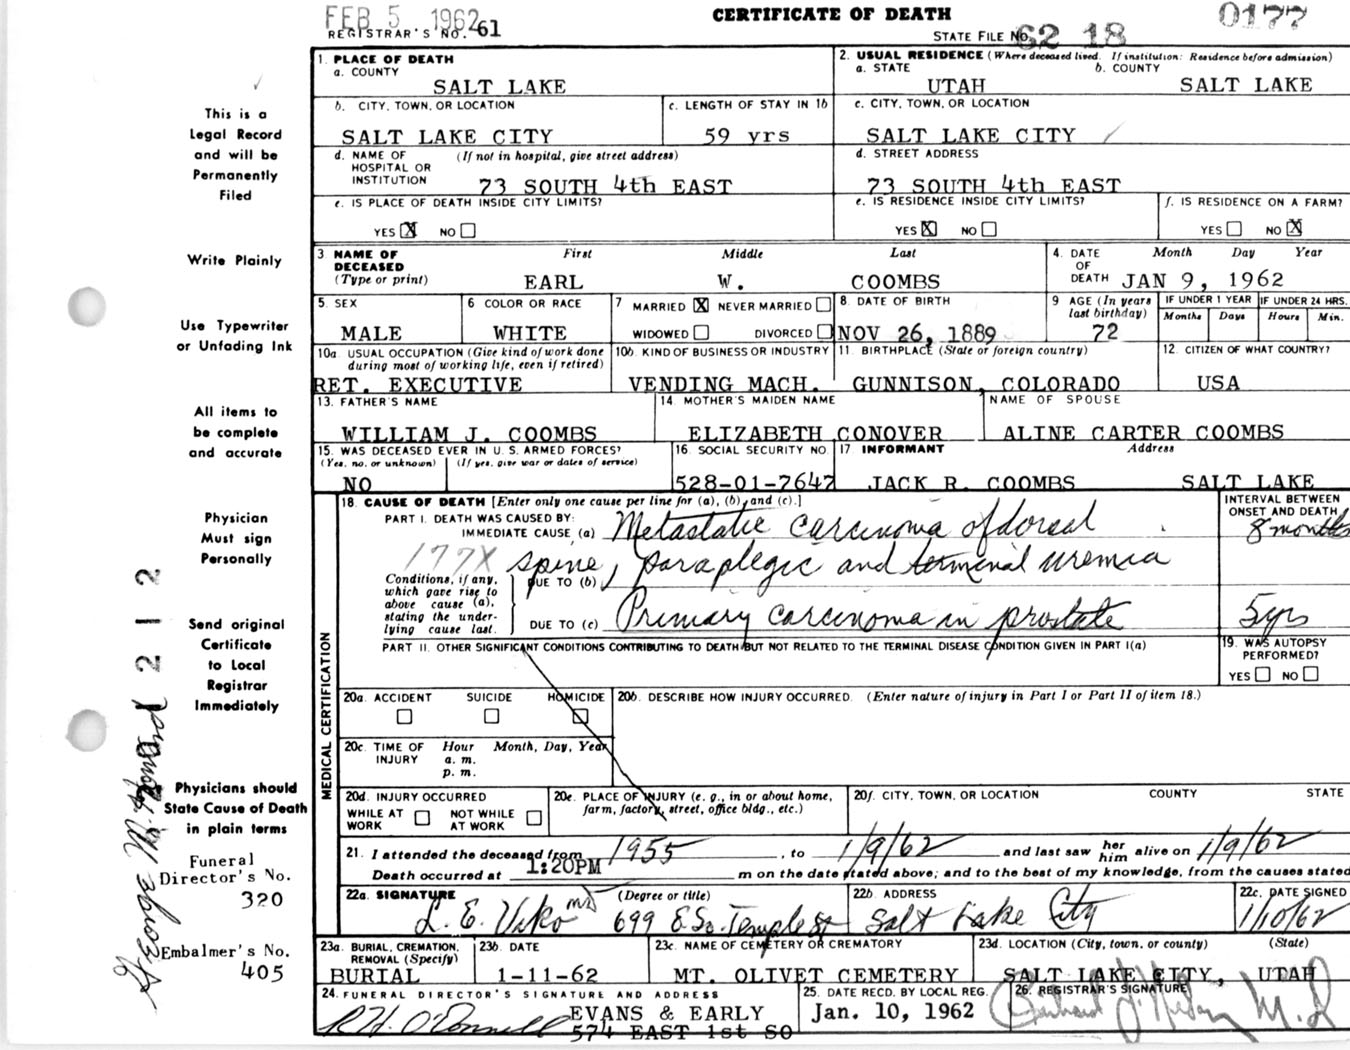 FEB 5 1962
CERTIFICATE OF DEATH
0177
REGISTRAR'S NO. 61
STATE FILE No. 62 18
1. PLACE OF DEATH
a. COUNTY
SALT LAKE
2. USUAL RESIDENCE (Where deceased lived. If institution: Residence before admission)
a. STATE b. COUNTY
UTAH SALT LAKE
b. CITY, TOWN, OR LOCATION
SALT LAKE CITY
c. LENGTH OF STAY IN 1b
59 yrs
c. CITY, TOWN, OR LOCATION
SALT LAKE CITY
d. NAME OF HOSPITAL OR INSTITUTION (If not in hospital, give street address)
73 SOUTH 4th EAST
d. STREET ADDRESS
73 SOUTH 4th EAST
e. IS PLACE OF DEATH INSIDE CITY LIMITS?
YES X NO
e. IS RESIDENCE INSIDE CITY LIMITS?
YES X NO
f. IS RESIDENCE ON A FARM?
YES NO X
3 NAME OF DECEASED (Type or print)
First Middle Last
EARL W. COOMBS
4. DATE OF DEATH
Month Day Year
JAN 9, 1962
5. SEX
MALE
6 COLOR OR RACE
WHITE
7 MARRIED X NEVER MARRIED
WIDOWED DIVORCED
8. DATE OF BIRTH
NOV 26, 1889
9 AGE (In years last birthday)
72
IF UNDER 1 YEAR IF UNDER 24 HRS.
Months Days Hours Min.
10a. USUAL OCCUPATION (Give kind of work done during most of working life, even if retired)
RET. EXECUTIVE
10b. KIND OF BUSINESS OR INDUSTRY
VENDING MACH.
11. BIRTHPLACE (State or foreign country)
GUNNISON, COLORADO
12. CITIZEN OF WHAT COUNTRY?
USA
13. FATHER'S NAME
WILLIAM J. COOMBS
14. MOTHER'S MAIDEN NAME
ELIZABETH CONOVER
NAME OF SPOUSE
ALINE CARTER COOMBS
15. WAS DECEASED EVER IN U.S. ARMED FORCES?
(Yes, no, or unknown) (If yes, give war or dates of service)
NO
16. SOCIAL SECURITY NO.
528-01-7647
17 INFORMANT Address
JACK R. COOMBS SALT LAKE
18. CAUSE OF DEATH [Enter only one cause per line for (a), (b), and (c).]
INTERVAL BETWEEN ONSET AND DEATH
PART I. DEATH WAS CAUSED BY:
IMMEDIATE CAUSE (a) Metastatic carcinoma of dorsal
8 months
177X spine, paraplegic and terminal uremia
Conditions, if any, which gave rise to above cause (a), stating the underlying cause last.
DUE TO (b)
DUE TO (c) Primary carcinoma in prostate
5 yrs
PART II. OTHER SIGNIFICANT CONDITIONS CONTRIBUTING TO DEATH BUT NOT RELATED TO THE TERMINAL DISEASE CONDITION GIVEN IN PART I(a)
19. WAS AUTOPSY PERFORMED?
YES NO
20a. ACCIDENT SUICIDE HOMICIDE
20b. DESCRIBE HOW INJURY OCCURRED. (Enter nature of injury in Part I or Part II of item 18.)
20c. TIME OF INJURY
Hour Month, Day, Year
a. m.
p. m.
20d. INJURY OCCURRED
WHILE AT WORK NOT WHILE AT WORK
20e. PLACE OF INJURY (e. g., in or about home, farm, factory, street, office bldg., etc.)
20f. CITY, TOWN, OR LOCATION COUNTY STATE
21. I attended the deceased from 1955, to 1/9/62 and last saw her him alive on 1/9/62
Death occurred at 1:20PM m on the date stated above; and to the best of my knowledge, from the causes stated
22a. SIGNATURE (Degree or title)
L. E. Viko MD
22b. ADDRESS
699 E. So. Temple St Salt Lake City
22c. DATE SIGNED
1/10/62
23a. BURIAL, CREMATION, REMOVAL (Specify)
BURIAL
23b. DATE
1-11-62
23c. NAME OF CEMETERY OR CREMATORY
MT. OLIVET CEMETERY
23d. LOCATION (City, town, or county) (State)
SALT LAKE CITY, UTAH
24. FUNERAL DIRECTOR'S SIGNATURE AND ADDRESS
R H. O'Donnell EVANS & EARLY
574 EAST 1st SO
25. DATE RECD. BY LOCAL REG.
Jan. 10, 1962
26. REGISTRAR'S SIGNATURE
M. D
MEDICAL CERTIFICATION
This is a
Legal Record
and will be
Permanently
Filed
Write Plainly
Use Typewriter
or Unfading Ink
All items to
be complete
and accurate
Physician
Must sign
Personally
Send original
Certificate
to Local
Registrar
Immediately
Physicians should
State Cause of Death
in plain terms
Funeral
Director's No.
320
Embalmer's No.
405
1212
George W.